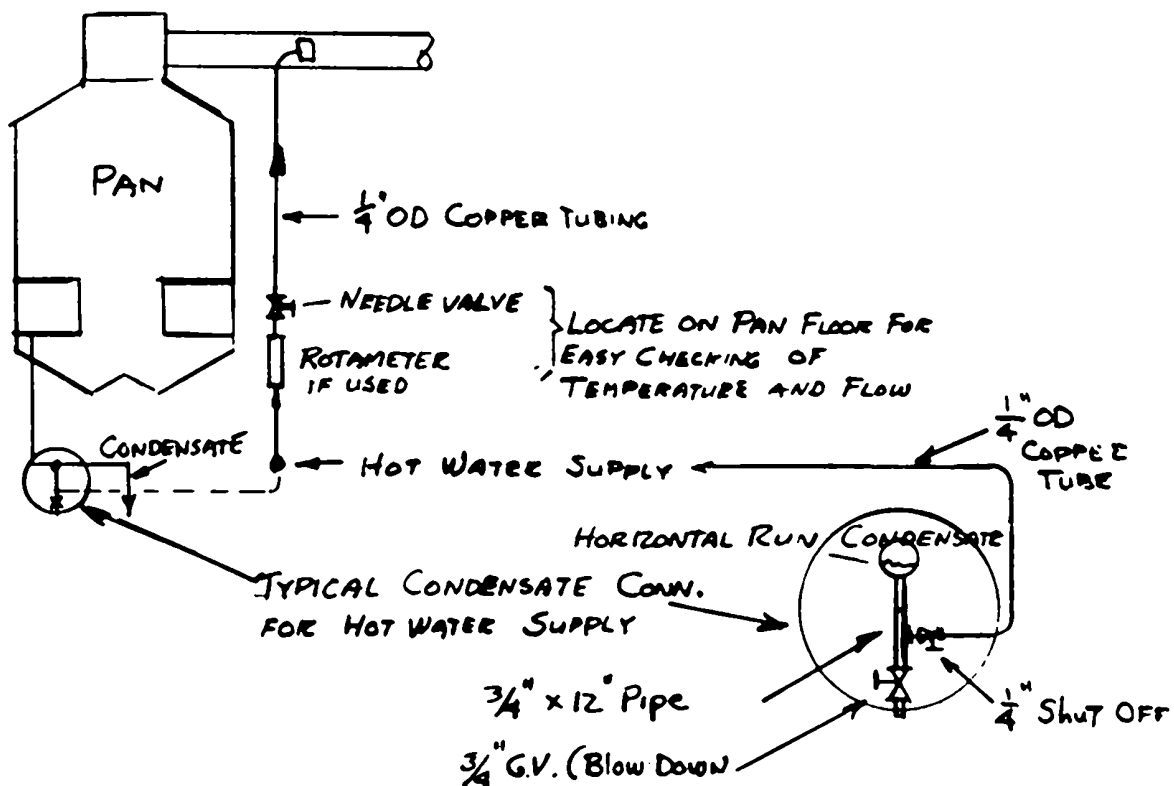 PAN
1/4" OD COPPER TUBING
NEEDLE VALVE
ROTAMETER
IF USED
LOCATE ON PAN FLOOR FOR
EASY CHECKING OF
TEMPERATURE AND FLOW
CONDENSATE
HOT WATER SUPPLY
1/4" OD
COPPER
TUBE
HORIZONTAL RUN CONDENSATE
TYPICAL CONDENSATE CONN.
FOR HOT WATER SUPPLY
3/4" x 12" Pipe
1/4" Shut Off
3/4" G.V. (Blow Down